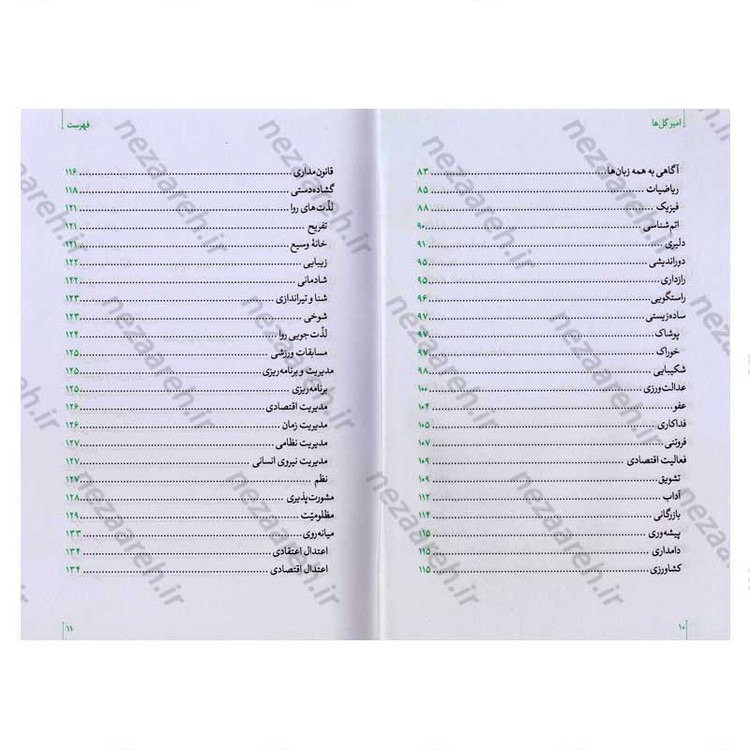 امیر گل‌ها
آگاهی به همه زبان‌ها ۸۳
ریاضیات ۸۵
فیزیک ۸۸
اتم‌شناسی ۹۰
دلیری ۹۱
دوراندیشی ۹۵
رازداری ۹۵
راستگویی ۹۶
ساده‌زیستی ۹۷
پوشاک ۹۷
خوراک ۹۷
شکیبایی ۹۸
عدالت‌ورزی ۱۰۰
عفو ۱۰۴
فداکاری ۱۰۵
فروتنی ۱۰۷
فعالیت اقتصادی ۱۰۹
تشویق ۱۰۹
آداب ۱۱۲
بازرگانی ۱۱۴
پیشه‌وری ۱۱۵
دامداری ۱۱۵
کشاورزی ۱۱۵
۱۰
فهرست
قانون‌مداری ۱۱۶
گشاده‌دستی ۱۱۸
لذّت‌های روا ۱۲۱
تفریح ۱۲۱
خانهٔ وسیع ۱۲۱
زیبایی ۱۲۲
شادمانی ۱۲۲
شنا و تیراندازی ۱۲۳
شوخی ۱۲۳
لذّت‌جویی روا ۱۲۴
مسابقات ورزشی ۱۲۵
مدیریت و برنامه‌ریزی ۱۲۵
برنامه‌ریزی ۱۲۵
مدیریت اقتصادی ۱۲۶
مدیریت زمان ۱۲۶
مدیریت نظامی ۱۲۷
مدیریت نیروی انسانی ۱۲۷
نظم ۱۲۷
مشورت‌پذیری ۱۲۸
مظلومیّت ۱۲۹
میانه‌روی ۱۳۳
اعتدال اعتقادی ۱۳۴
اعتدال اقتصادی ۱۳۴
۱۱
nezaareh.ir